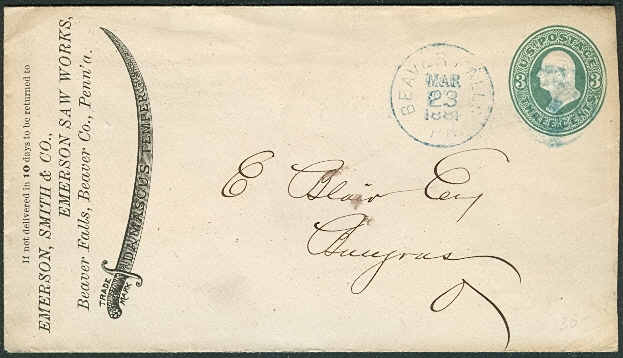 If not delivered in 10 days to be returned to
EMERSON, SMITH & CO.,
EMERSON SAW WORKS,
Beaver Falls, Beaver Co., Penn'a.
DAMASCUS TEMPER
TRADE
MARK
BEAVER FALLS
MAR
23
1881
PA
U.S. POSTAGE
3 3
THREE CENTS
E Blair Esq
30